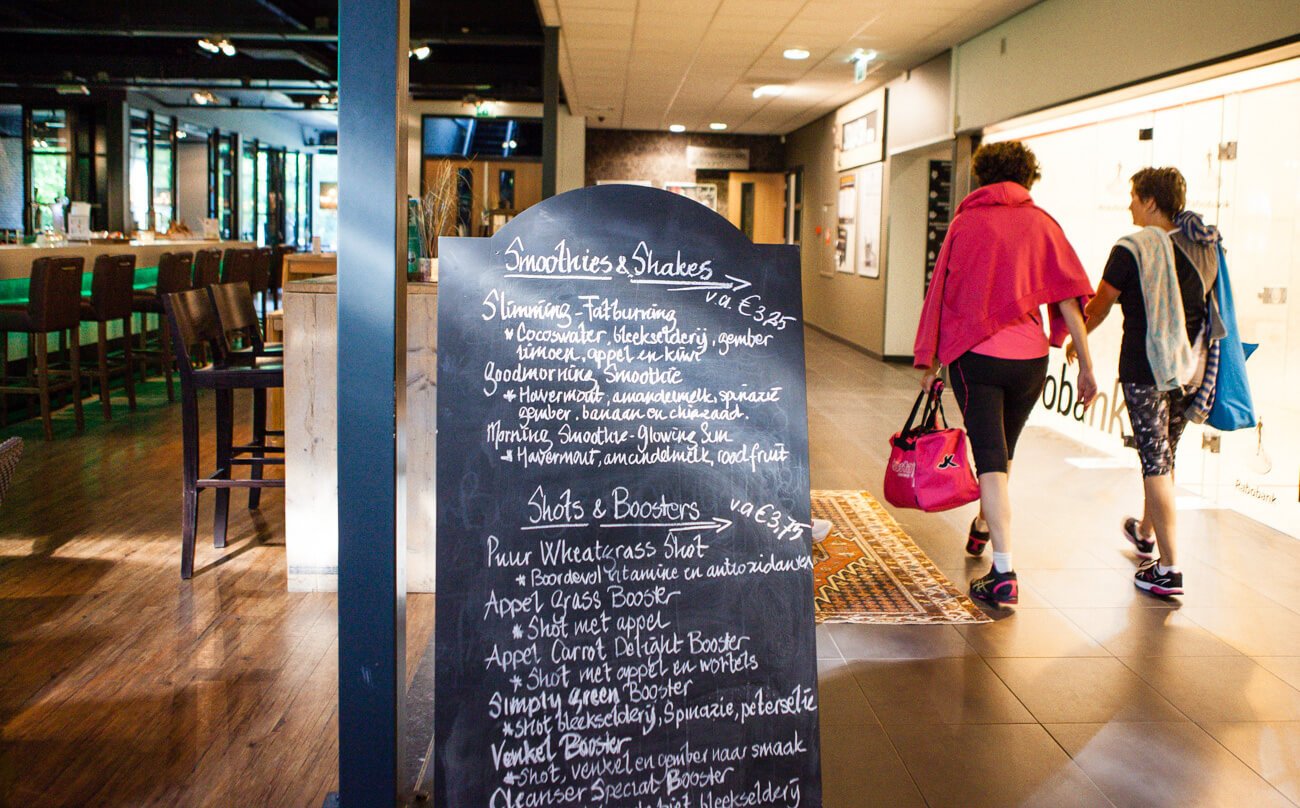 Smoothies & Shakes
v.a €3,25
Slimming - Fatburning
* Cocoswater, bleekselderij, gember
limoen, appel en kiwi
Goodmorning Smoothie
* Havermout, amandelmelk, spinazie
gember, banaan en chiazaad.
Morning Smoothie - Glowing Sun
* Havermout, amandelmelk, roodfruit
Shots & Boosters
v.a €3,75
Puur Wheatgrass Shot
* Boordevol vitamine en antioxidanten
Appel Grass Booster
* Shot met appel
Appel Carrot Delight Booster
* Shot met appel en wortels
Simply Green Booster
* Shot bleekselderij, Spinazie, peterselie
Venkel Booster
* Shot, venkel en gember naar smaak
Cleanser Special Booster
biet, bleekselderij
obank
Rabobank